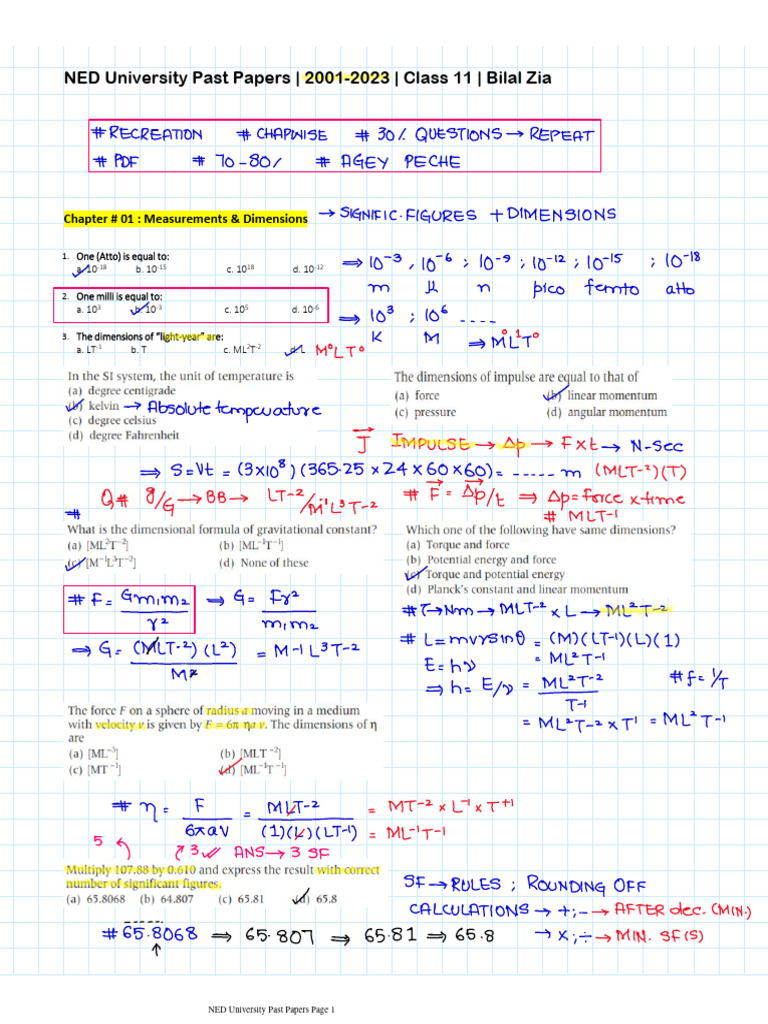 NED University Past Papers | 2001-2023 | Class 11 | Bilal Zia
# RECREATION # CHAPWISE # 30% QUESTIONS → REPEAT
# PDF # 70-80% # AGEY PECHE
Chapter # 01 : Measurements & Dimensions → SIGNIFIC. FIGURES + DIMENSIONS
1. One (Atto) is equal to:
a. 10⁻¹⁸ b. 10⁻¹⁵ c. 10¹⁸ d. 10⁻¹²
⇒ 10⁻³ , 10⁻⁶ ; 10⁻⁹ ; 10⁻¹² ; 10⁻¹⁵ ; 10⁻¹⁸
m μ n pico femto atto
2. One milli is equal to:
a. 10³ b. 10⁻³ c. 10⁵ d. 10⁻⁶
⇒ 10³ ; 10⁶ ....
K M ⇒ M⁰L¹T⁰
3. The dimensions of "light-year" are:
a. LT⁻¹ b. T c. ML²T⁻² d. L M⁰LT⁰
In the SI system, the unit of temperature is
(a) degree centigrade
(b) kelvin → Absolute temperature
(c) degree celsius
(d) degree Fahrenheit
The dimensions of impulse are equal to that of
(a) force (b) linear momentum
(c) pressure (d) angular momentum
J IMPULSE → Δp → F×t → N-Sec
⇒ S=Vt = (3×10⁸)(365.25×24×60×60) = ..... m (MLT⁻²)(T)
Q# g/G → BB → LT⁻²/M⁻¹L³T⁻² # F = Δp/t ⇒ Δp = force × time
# # MLT⁻¹
What is the dimensional formula of gravitational constant?
(a) [ML²T⁻²] (b) [ML⁻¹T⁻¹]
(c) [M⁻¹L³T⁻²] (d) None of these
Which one of the following have same dimensions?
(a) Torque and force
(b) Potential energy and force
(c) Torque and potential energy
(d) Planck's constant and linear momentum
# F = Gm₁m₂/r² ⇒ G = Fr²/m₁m₂
⇒ G = (MLT⁻²)(L²)/M² = M⁻¹L³T⁻²
# τ → Nm → MLT⁻² × L → ML²T⁻²
# L = mvrsinθ = (M)(LT⁻¹)(L)(1)
E = hν = ML²T⁻¹
⇒ h = E/ν = ML²T⁻²/T⁻¹ # f = 1/T
= ML²T⁻² × T¹ = ML²T⁻¹
The force F on a sphere of radius a moving in a medium
with velocity v is given by F = 6π ηa v. The dimensions of η
are
(a) [ML⁻³] (b) [MLT ⁻²]
(c) [MT ⁻¹] (d) [ML⁻¹T ⁻¹]
# η = F/6πav = MLT⁻²/(1)(L)(LT⁻¹) = MT⁻² × L⁻¹ × T⁺¹
= ML⁻¹T⁻¹
5 3 ANS → 3 SF
Multiply 107.88 by 0.610 and express the result with correct
number of significant figures.
(a) 65.8068 (b) 64.807 (c) 65.81 (d) 65.8
# 65.8068 ⇒ 65.807 ⇒ 65.81 ⇒ 65.8
SF → RULES ; ROUNDING OFF
CALCULATIONS → +;- → AFTER dec. (MIN.)
→ ×;÷ → MIN. SF(S)
NED University Past Papers Page 1